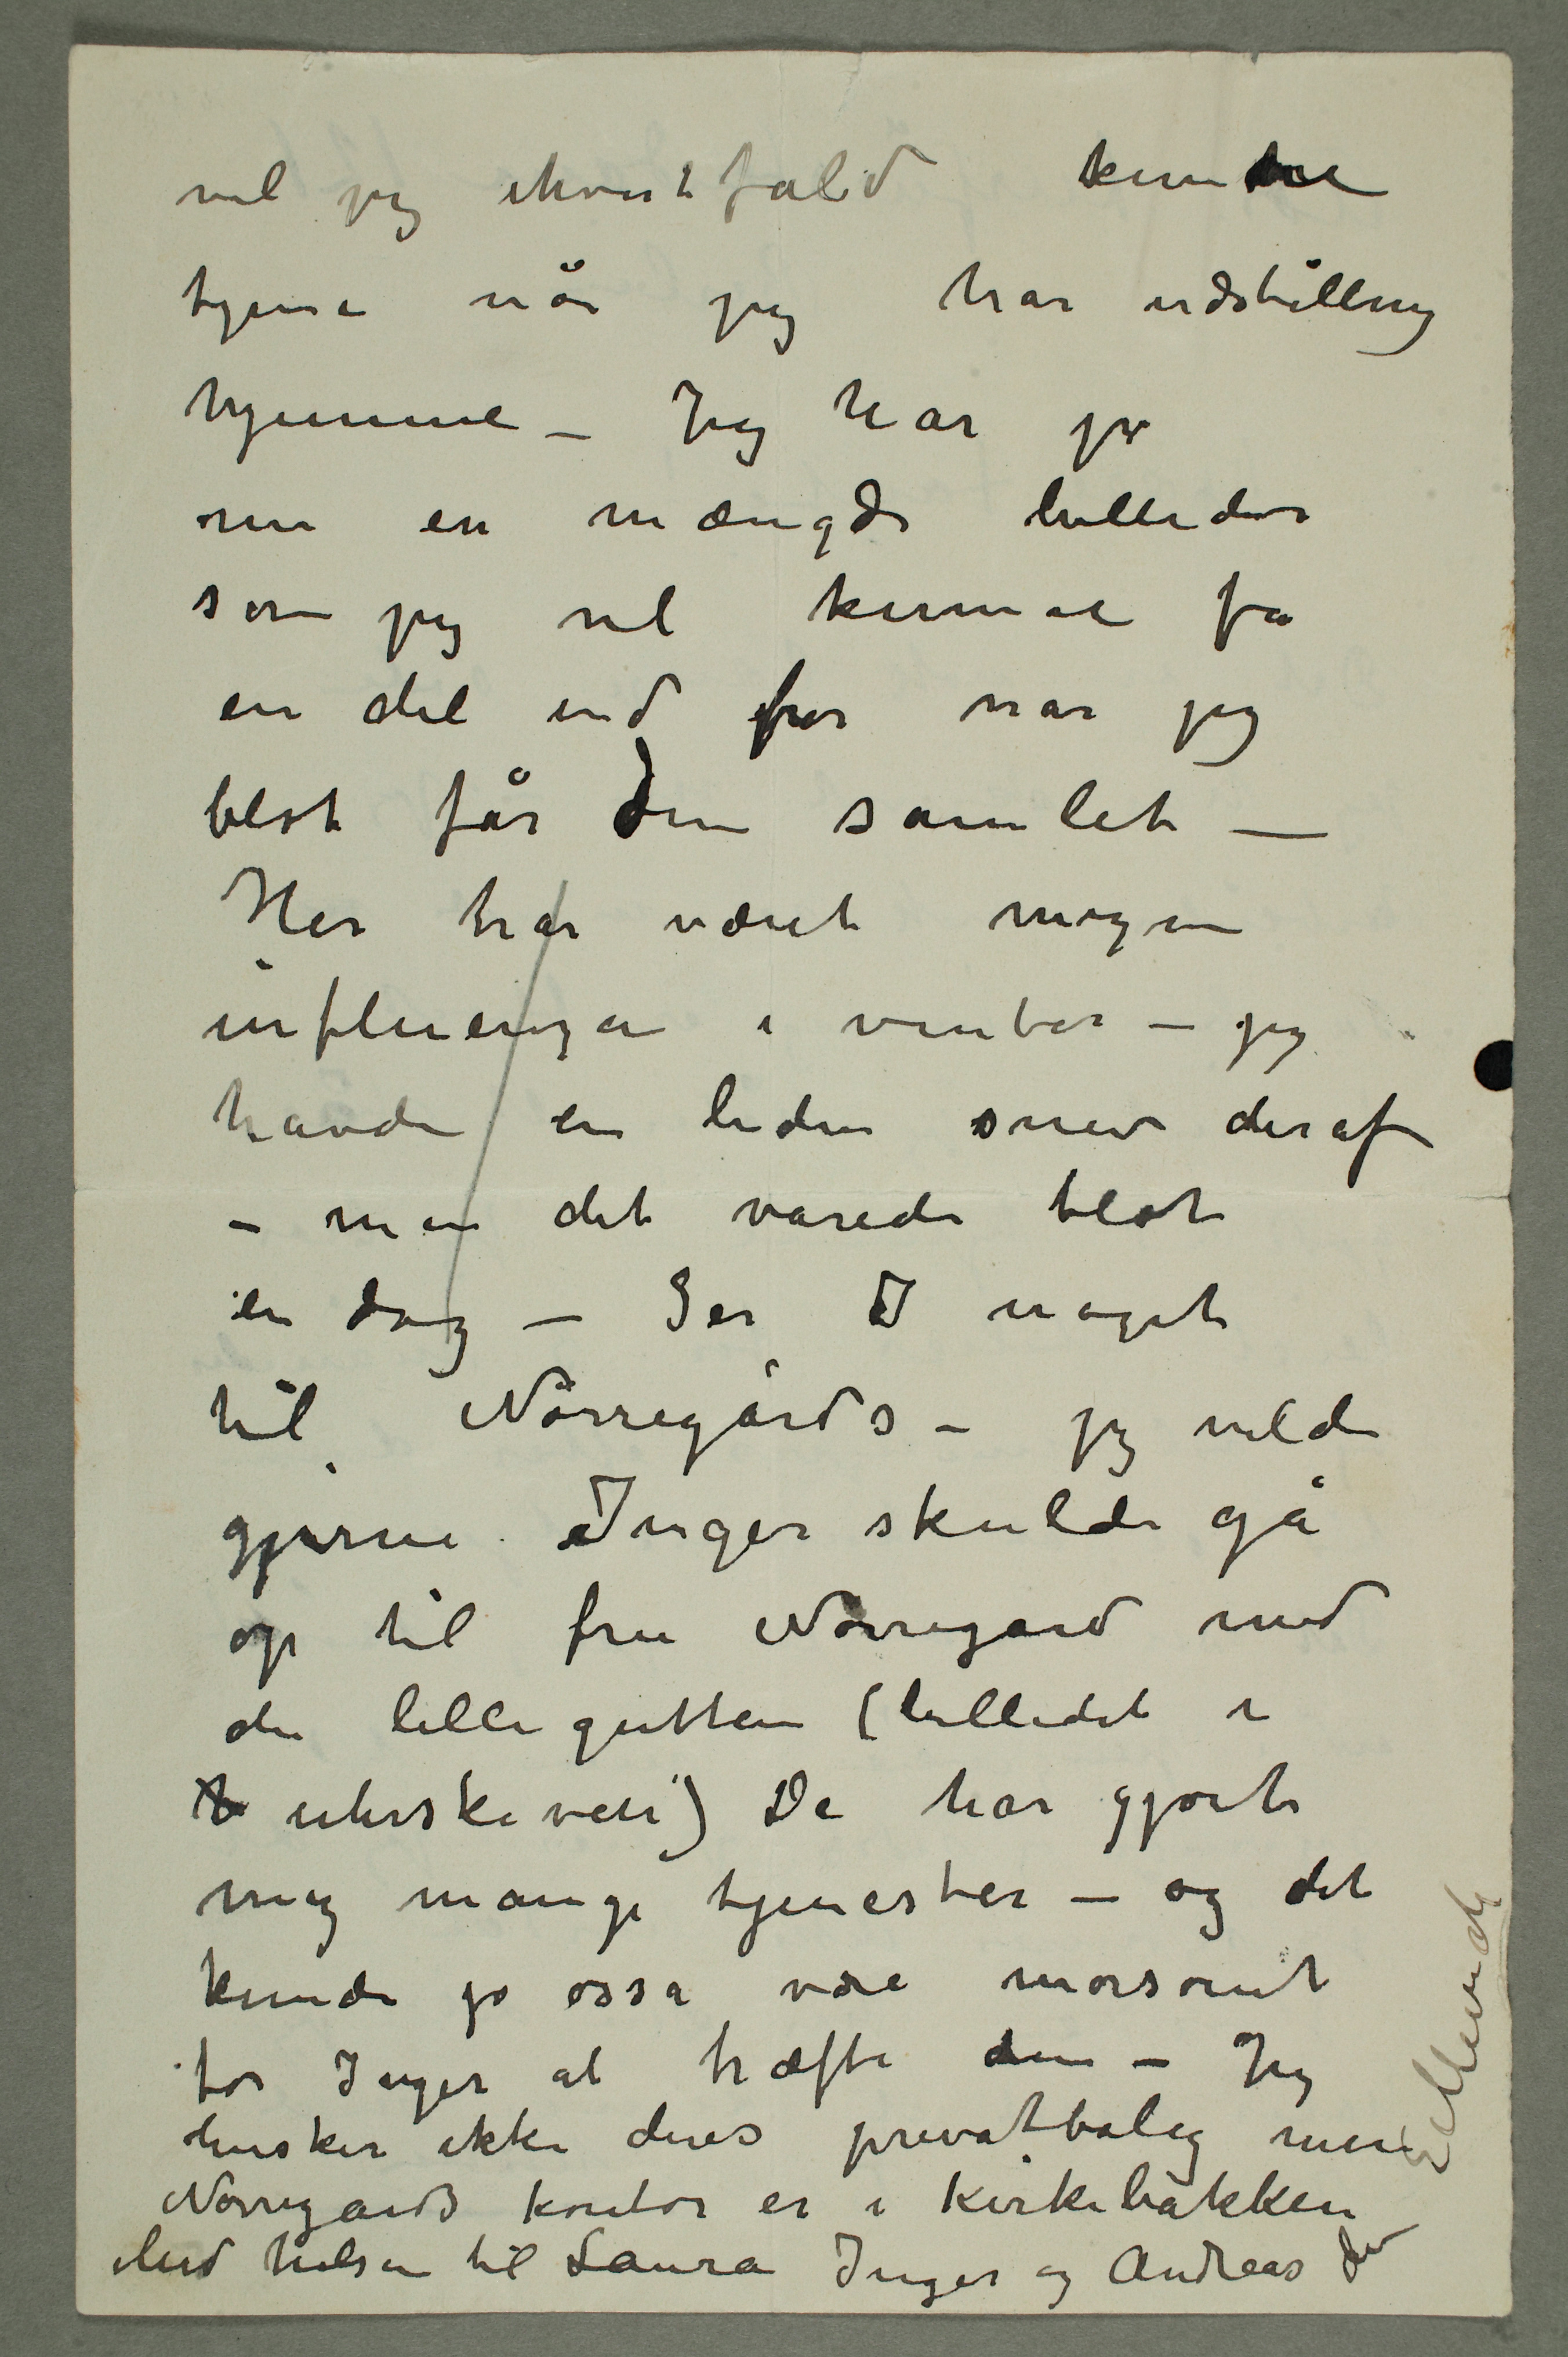 vel jeg ihvertfald kunne
tjene når jeg har udstilling
hjemme – Jeg har jo
nu en mængde billeder
som jeg vel kunne få
en del ind for når jeg
blot får dem samlet –
Her har været megen
influenza i vinter – jeg
havde en liden snev deraf
– men det varede blot
en dag – Ser I noget
til Nørregårds – jeg vilde
gjerne Inger skulde gå
op til fru Nørregård med
den lille gutten (billedet i
uhrskiven) De har gjort
mig mange tjenester – og det
kunde jo osså være morsomt
for Inger at træffe dem – Jeg
husker ikke deres privatbolig men
Nørregårds kontor er i Kirkebakken
Med hilsen til Laura Inger og Andreas Din
E Munch